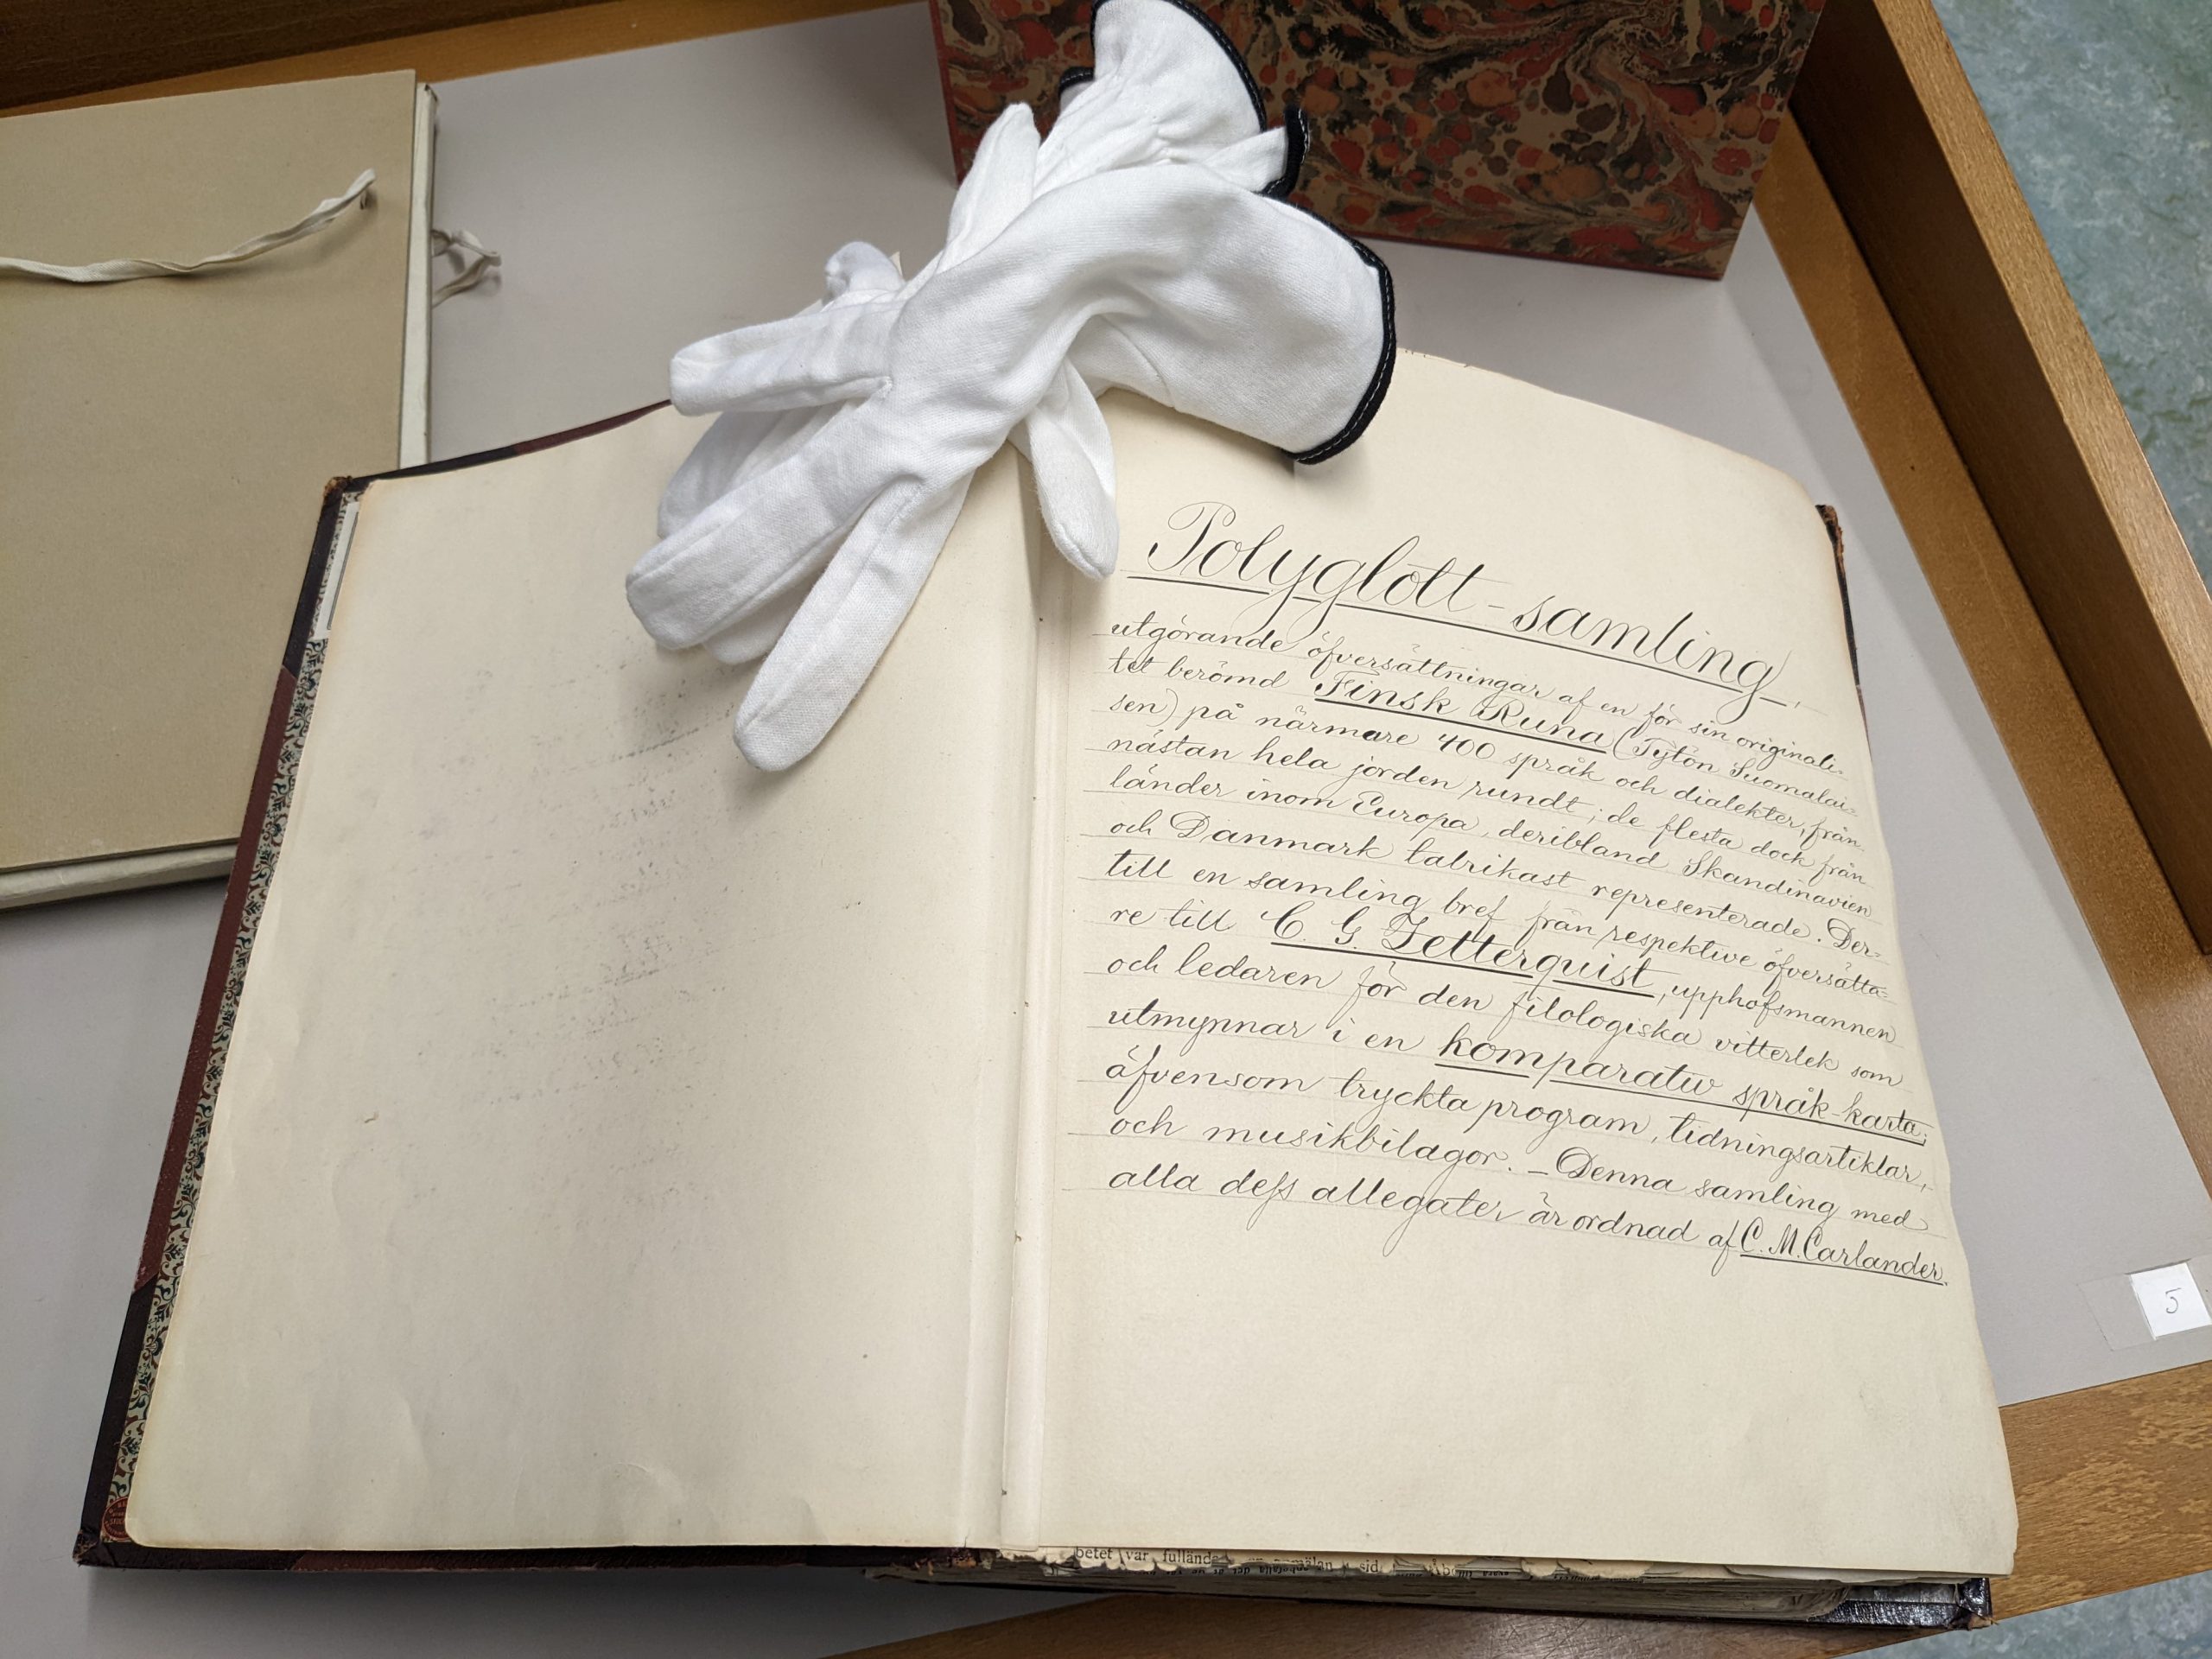 Polyglott-samling,
utgörande öfversättningar af en för sin originali-
tet berömd Finsk Runa (Tytön Suomalai=
sen) på närmare 400 språk och dialekter, från
nästan hela jorden rundt; de flesta dock från
länder inom Europa, deribland Skandinavien
och Danmark talrikast representerade. Der-
till en samling bref från respektive öfversätta=
re till C. G. Zetterquist, upphofsmannen
och ledaren för den filologiska vitterlek som
utmynnar i en komparativ språk-karta;
äfvensom tryckta program, tidningsartiklar,
och musikbilagor. – Denna samling med
alla dess allegater är ordnad af C. M. Carlander.
5
betet var fullände mälan sid